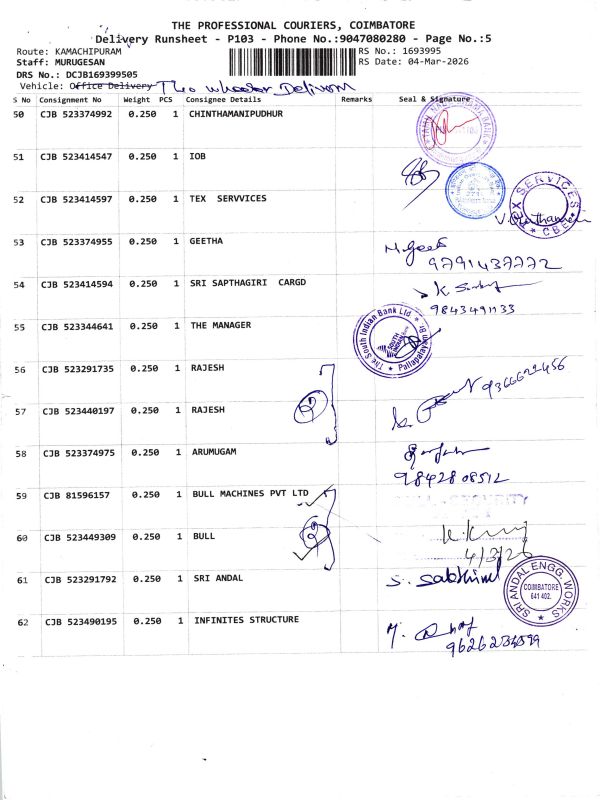 THE PROFESSIONAL COURIERS, COIMBATORE
Delivery Runsheet - P103 - Phone No.:9047080280 - Page No.:5
Route: KAMACHIPURAM
RS No.: 1693995
Staff: MURUGESAN
RS Date: 04-Mar-2026
DRS No.: DCJB169399505
Vehicle: Office Delivery Two wheeler Delivery
S No Consignment No Weight PCS Consignee Details Remarks Seal & Signature
50 CJB 523374992 0.250 1 CHINTHAMANIPUDHUR
51 CJB 523414547 0.250 1 IOB
52 CJB 523414597 0.250 1 TEX SERVVICES
TEX SERVICES * CBE *
53 CJB 523374955 0.250 1 GEETHA
M. Geetha
9791437772
54 CJB 523414594 0.250 1 SRI SAPTHAGIRI CARGD
9843491133
55 CJB 523344641 0.250 1 THE MANAGER
The South Indian Bank Ltd * Pallapalayam Br. *
SOUTH INDIAN
56 CJB 523291735 0.250 1 RAJESH
9366622456
57 CJB 523440197 0.250 1 RAJESH
2
58 CJB 523374975 0.250 1 ARUMUGAM
9842808512
59 CJB 81596157 0.250 1 BULL MACHINES PVT LTD
SECURITY
60 CJB 523449309 0.250 1 BULL
2
4/3/26
61 CJB 523291792 0.250 1 SRI ANDAL
S. Sakthivel
SRI ANDAL ENGG. WORKS
COIMBATORE
641 402.
62 CJB 523490195 0.250 1 INFINITES STRUCTURE
9626234599